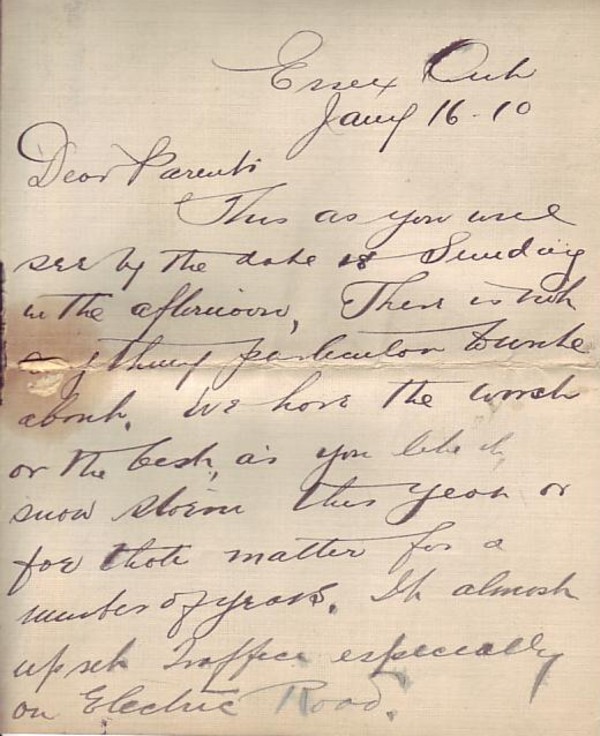 Essex Ont
Jany 16-10
Dear Parents
This as you will
see by the date is Sunday
in the afternoon, There is not
anything particular to write
about. We have the worst
or the best, as you like it,
snow storm this year or
for that matter for a
number of years. It almost
upset Traffice especially
on Electric Road.